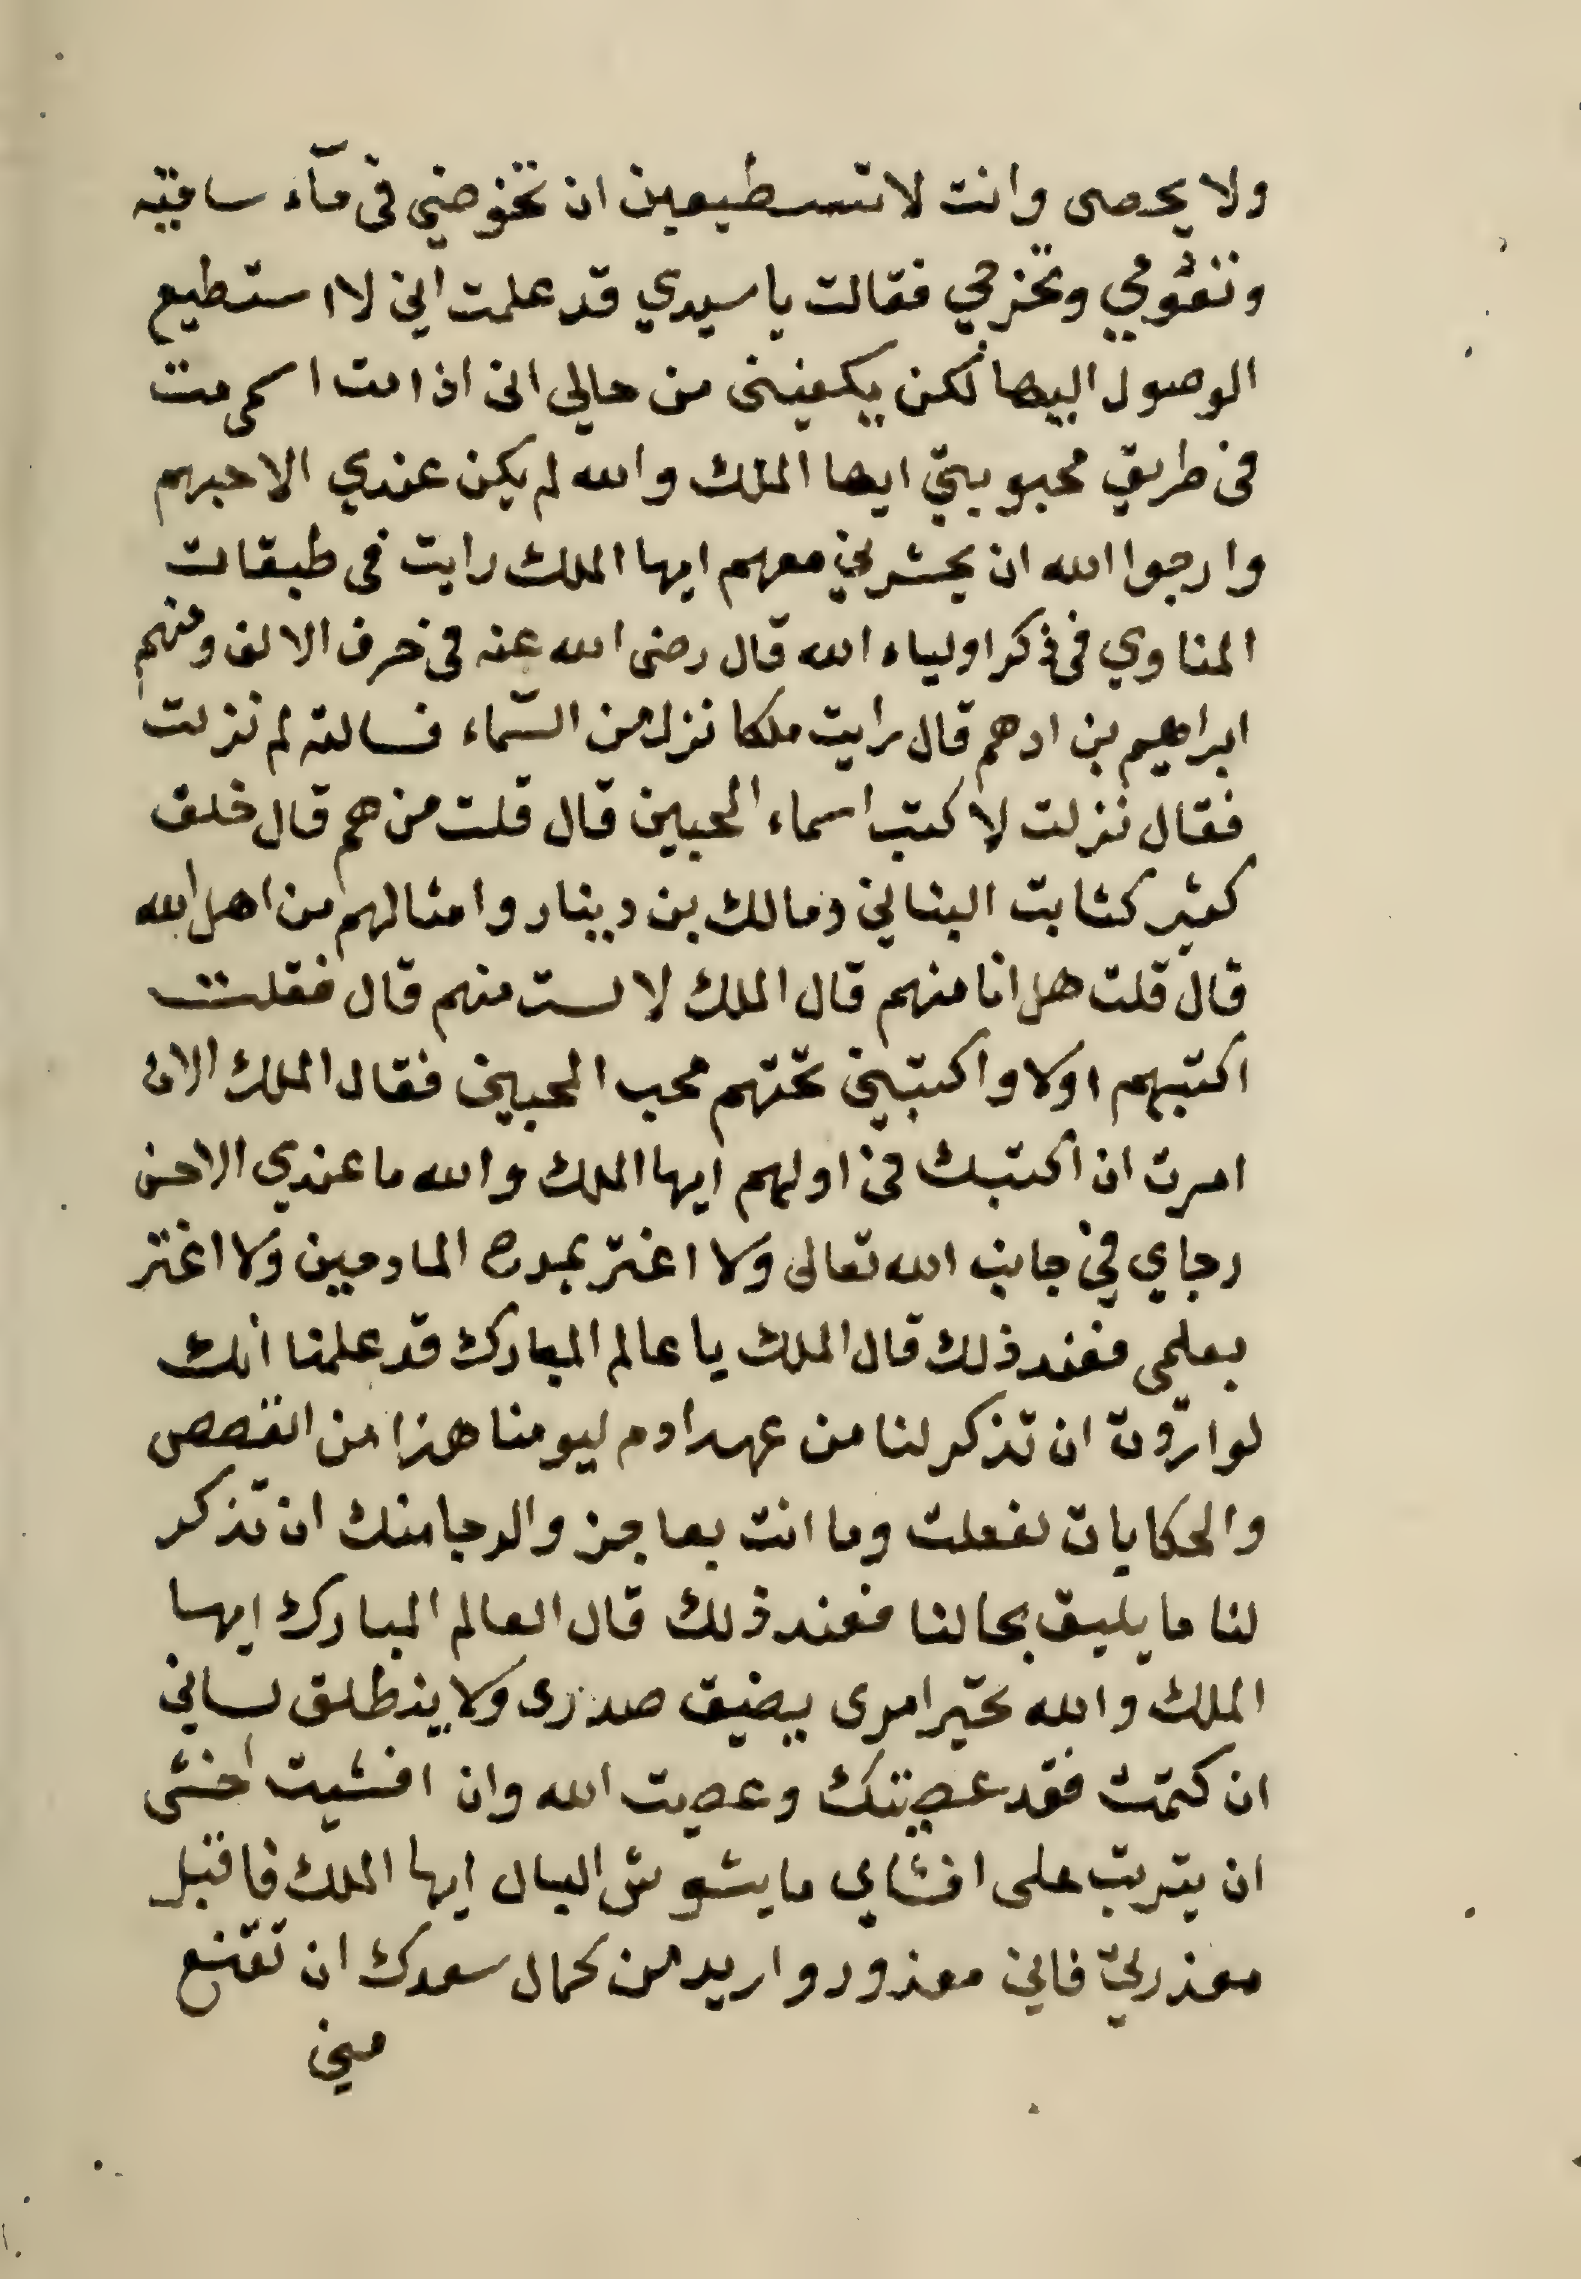 ولا يحصى وانت لا تسطيعين ان تخوضي في مآء ساقيه
وتقومي وتخرجي فقالت يا سيدي قد علمت اني لا استطيع
الوصول اليها لكن يكفيني من حالي اني اذا مت اسمى مت
في طريق محبوبيتي ايها الملك والله لم يكن عندي الا حبهم
وارجوا الله ان يحشرني معهم ايها الملك رايت في طبقات
المناوي في ذكر اولياء الله قال رضى الله عنه في حرف الالف ومنهم
ابراهيم بن ادهم قال رايت ملكا نزل من السّماء فسالته لم نزلت
فقال نزلت لاكتب اسماء المحبين قال قلت من هم قال خلق
كثير كثابت البناني ومالك بن دينار وامثالهم من اهل الله
قال قلت هل انا منهم قال الملك لا لست منهم قال فقلت
اكتبهم اولا واكتبني تحتهم محب المحبين فقال الملك الان
امرت ان اكتبك في اولهم ايها الملك والله ما عندي الا حسن
رجاي في جانب الله تعالى ولا اغتر بمدح المادحين ولا اغتر
بعلمي فعند ذلك قال الملك يا عالم المبارك قد علمنا انك
لو اردت ان تذكر لنا من عهد ادم ليومنا هذا من القصص
والحكايات لفعلت وما انت بعاجز والرجا منك ان تذكر
لنا ما يليق بحالنا فعند ذلك قال العالم المبارك ايها
الملك والله تحيّر امري يضيق صدري ولا ينطلق لساني
ان كتمت فقد عصيتك وعصيت الله وان افشيت اخشى
ان يترتب على افشاي ما يشوش البال ايها الملك فاقبل
معذرتي فاني معذور واريد من كمال سعدك ان تقنع
مني